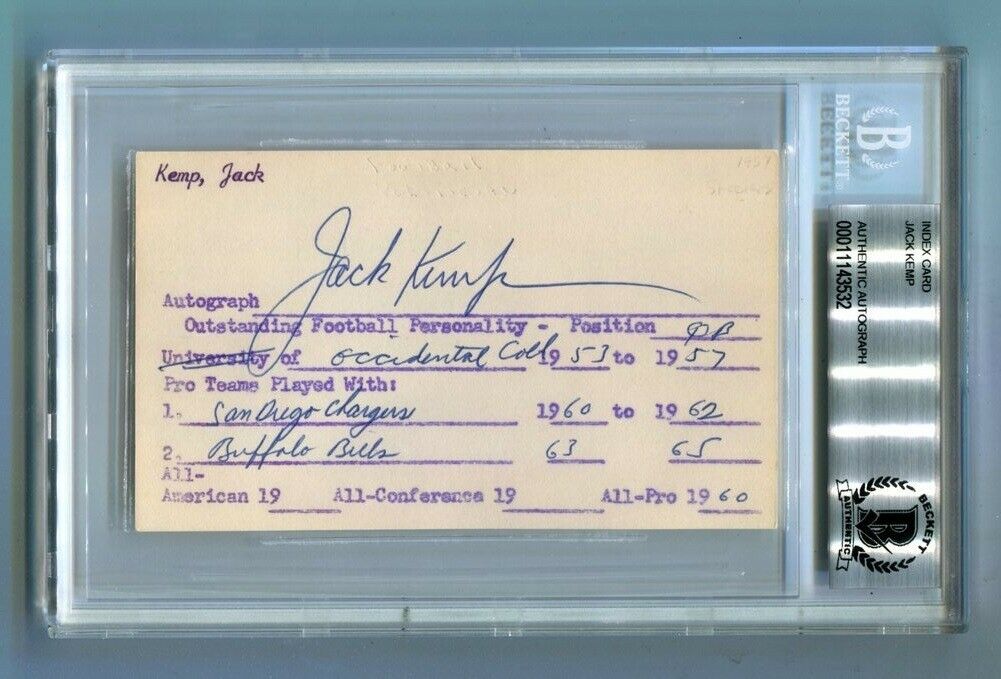 Kemp, Jack
1957
Jack Kemp
Autograph
Outstanding Football Personality - Position QB
University of Occidental Coll 1953 to 1957
Pro Teams Played With:
1. San Diego Chargers 1960 to 1962
2. Buffalo Bills 63 65
All-
American 19 All-Conference 19 All-Pro 1960
BECKETT
INDEX CARD
JACK KEMP
AUTHENTIC AUTOGRAPH
00011143532
BECKETT
AUTHENTIC